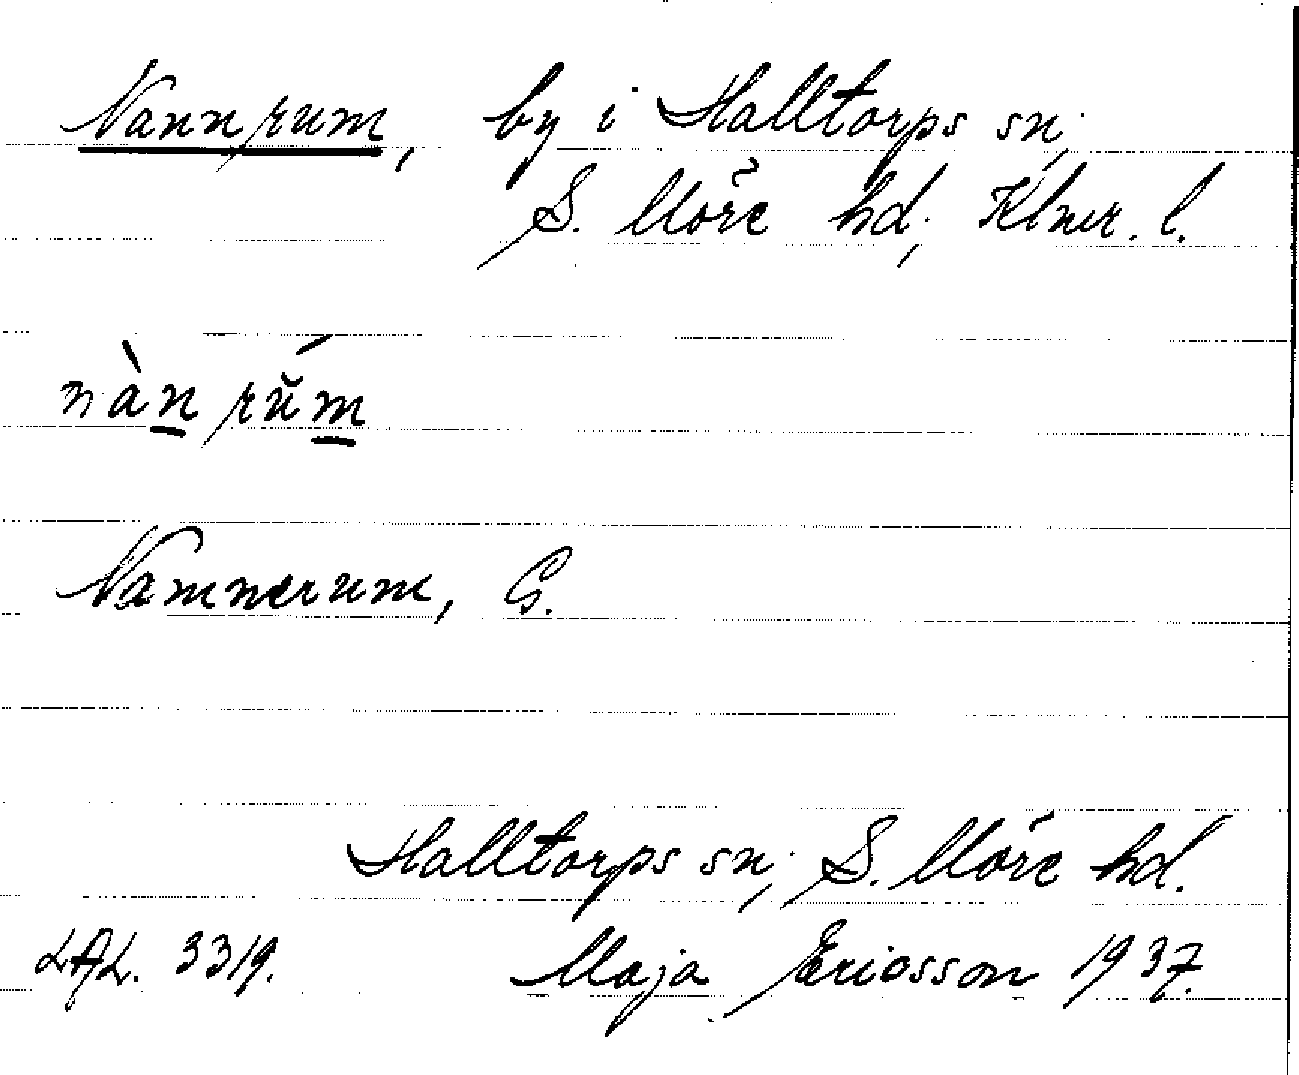 Nannrum, by i Halltorps sn;
S. Möre hd; Klmr. l.
nàn rŭ́m
Namnerum, G.
Halltorps sn; S. Möre hd.
LAL. 3319. Maja Ericsson 1937.